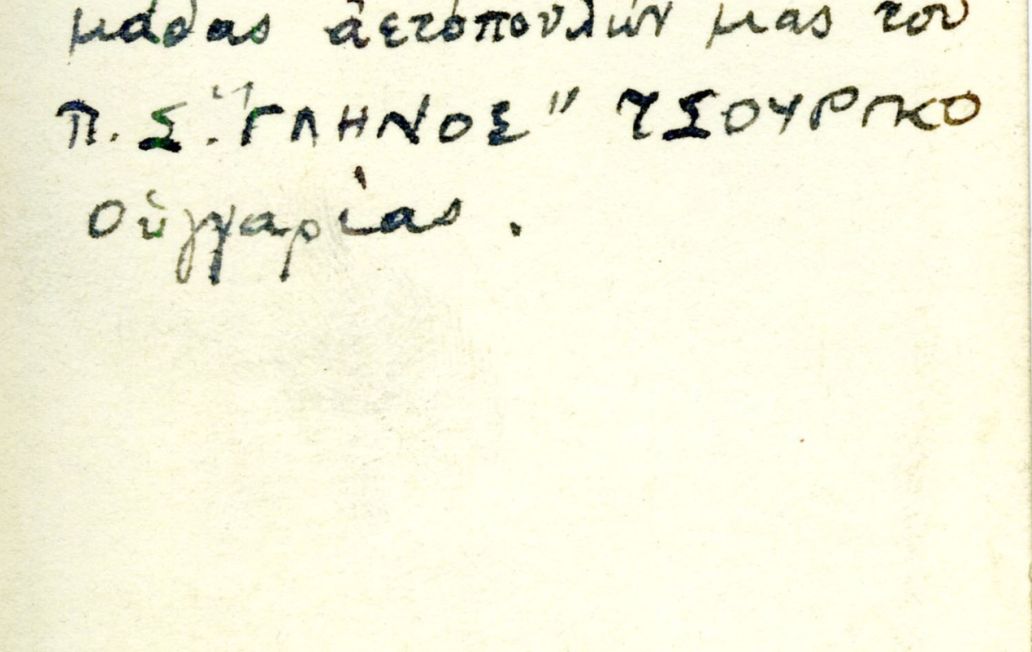 μάδας ἀετόπουλών μας του
Π. Σ. "ΓΛΗΝΟΣ" ΤΣΟΥΡΓΚΟ
Οὑγγαρίας.